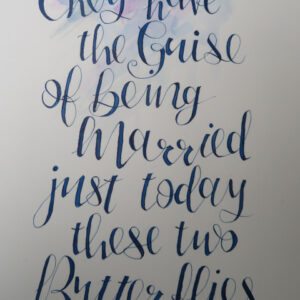 They have
the Guise
of Being
Married
just today
these two
Butterflies